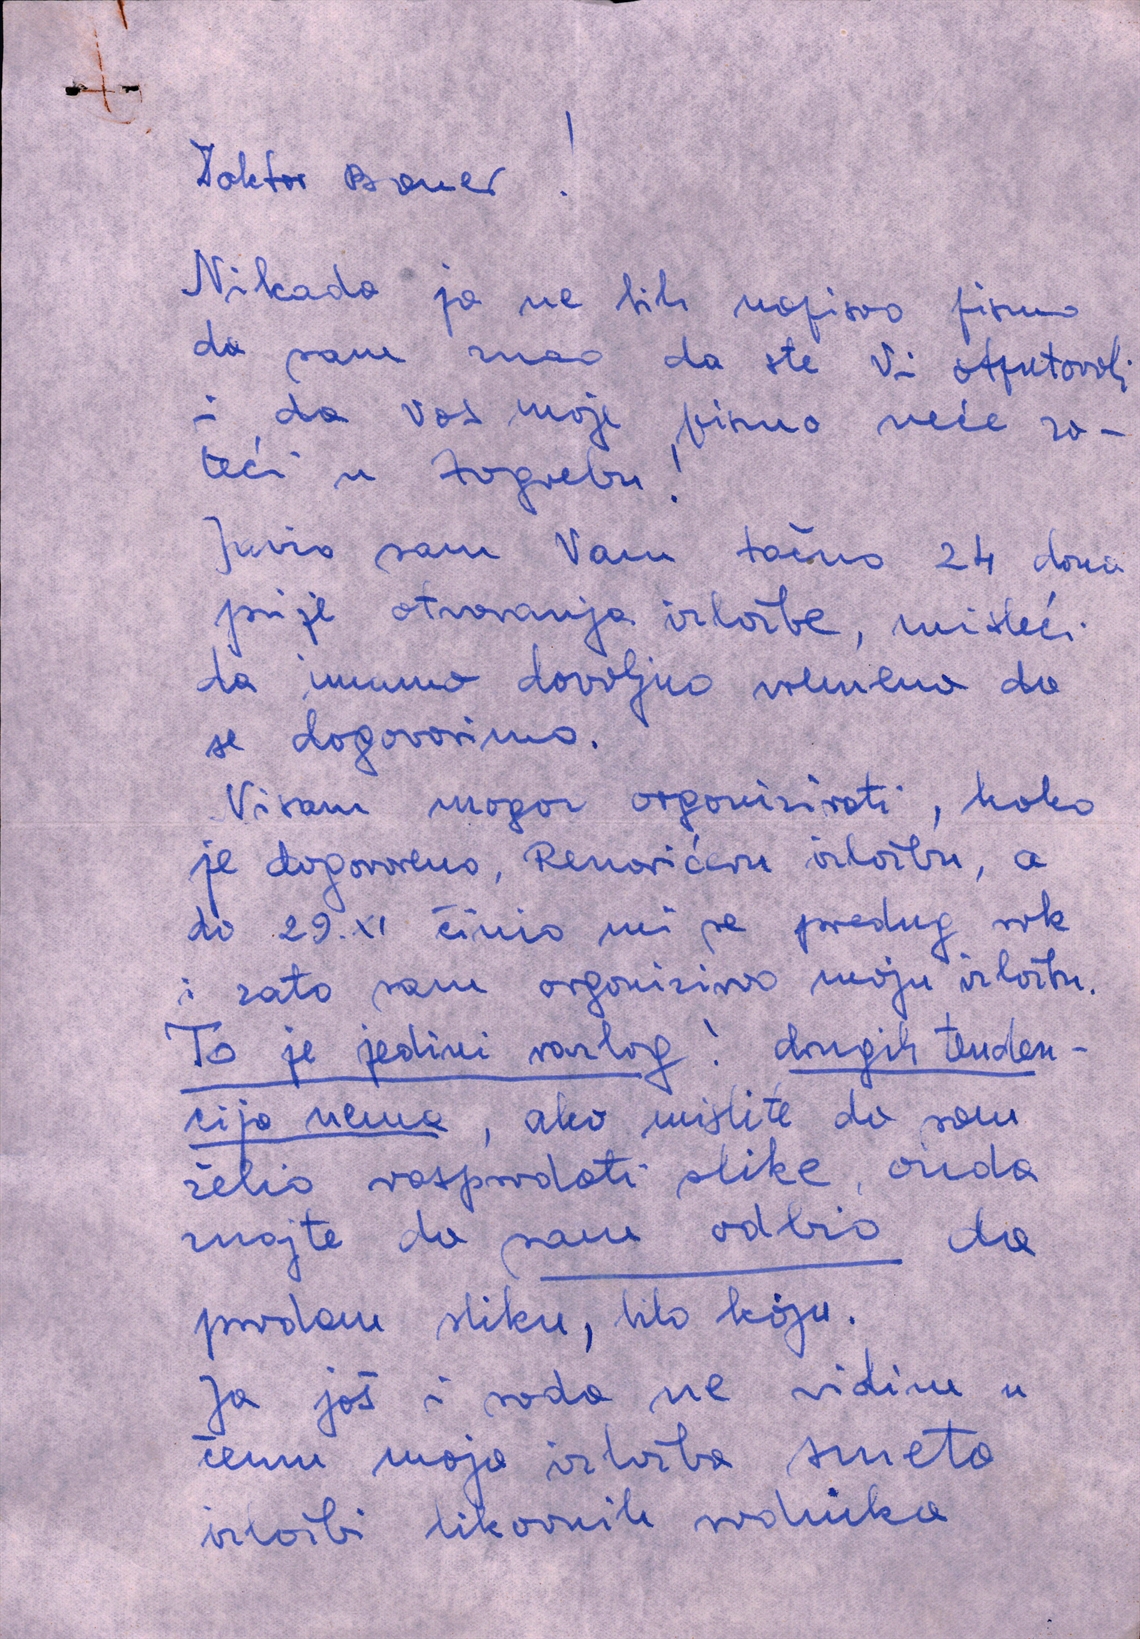 Doktor Bauer!
Nikada ja ne bih napisao pismo
da sam znao da ste Vi otputovali
i da Vas moje pismo neće za-
teći u Zagrebu!
Javio sam Vam točno 24 dana
prije otvaranja izložbe, misleći
da imamo dovoljno vremena da
se dogovorimo.
Nisam mogao organizirati, kako
je dogovoreno, Renarićevu izložbu, a
do 29. XI činio mi se predug rok
i zato sam organizirao moju izložbu.
To je jedini razlog! drugih tenden-
cija nema, ako mislite da sam
želio rasprodati slike, onda
znajte da sam odbio da
prodam sliku, bilo koju.
Ja još i sada ne vidim u
čemu moja izložba smeta
izložbi likovnih radnika